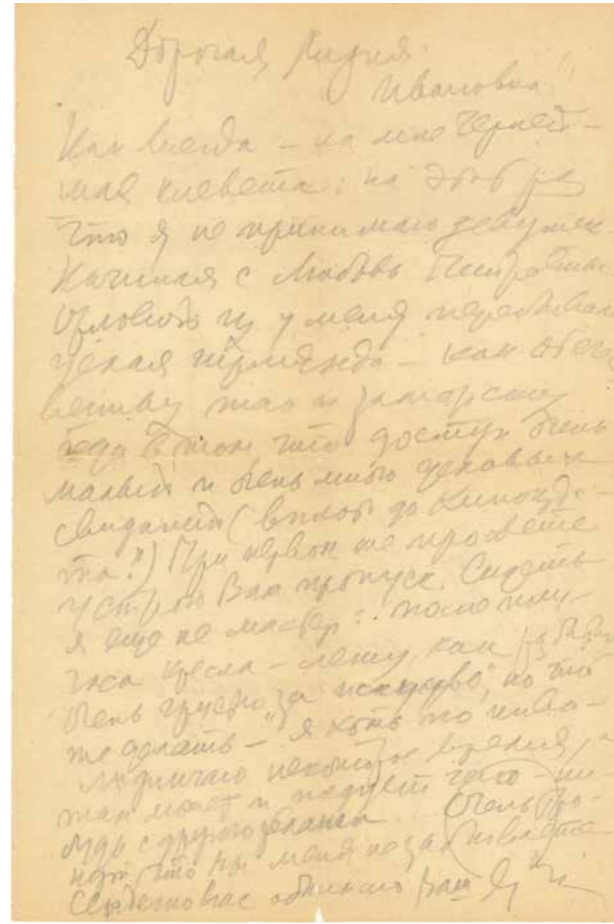 Дорогая Лидия
Ивановна!
Как всегда – на меня черней-
шая клевета: на этот раз
что я не принимаю девушек.
Начиная с Любовь Петровны
Орловой их у меня перебывала
целая – как отече
ственных так и заморских
беда в том что доступ очень
малый и очень много деловых
свиданий (вплоть до Кинокоми-
та!) При первом же просвете
устрою Вам пропуск. Сидеть
я еще не мастер: после полу-
часа кресла – лежу, как
Очень грустно за "искусство", но что
же делать – "я хоть но
некоторое время,
так может и чего-ни-
будь с другого Очень тро-
нут что Вы меня не забываете
Сердечно Вас обнимаю Ваш